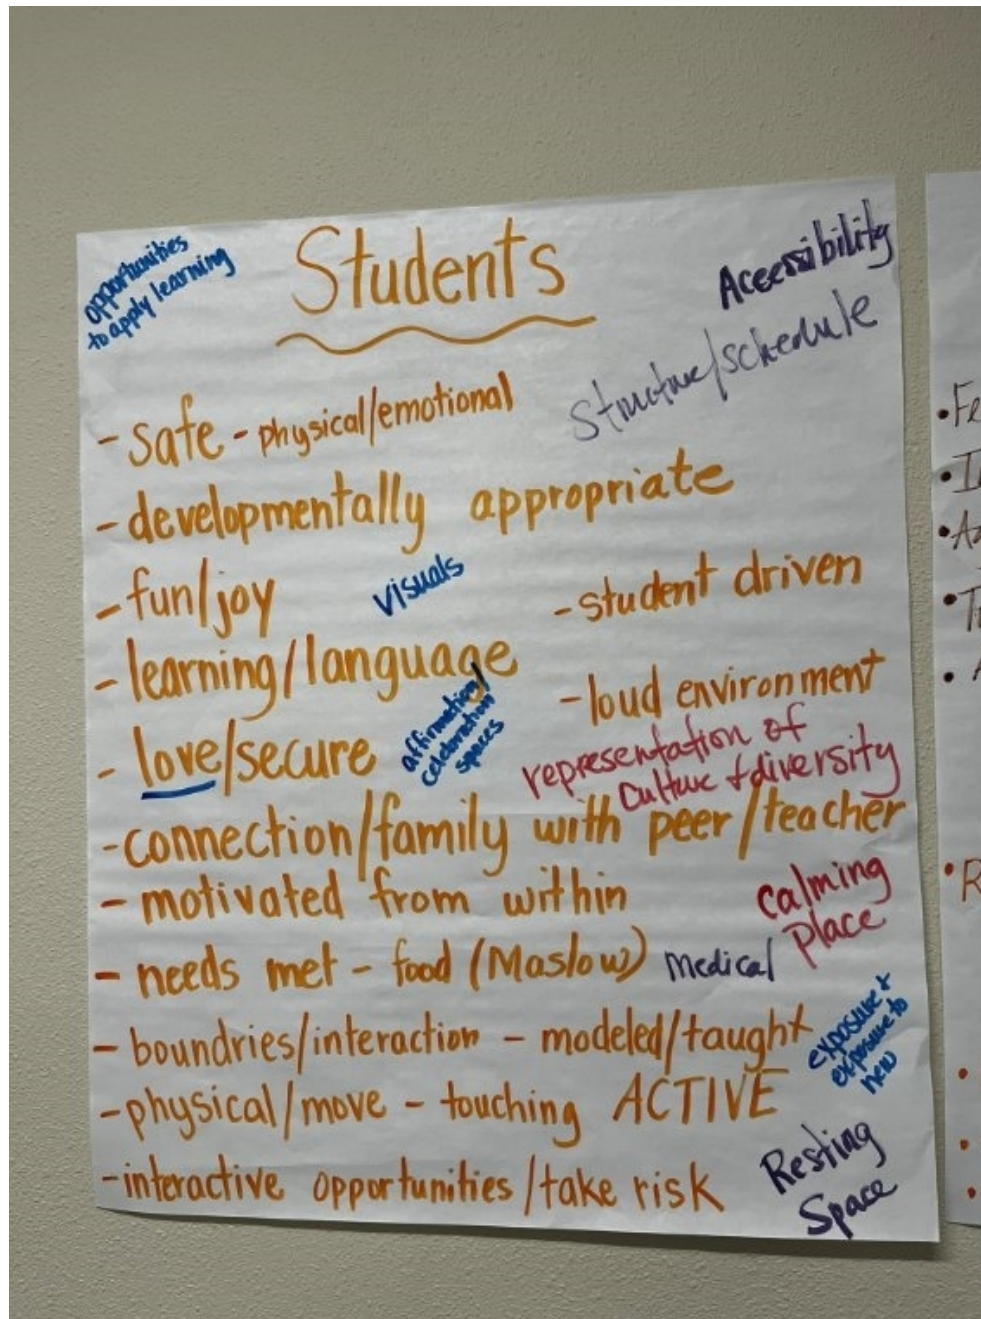 opportunities
to apply learning
Students
Accessibility
Structure/schedule
- safe - physical/emotional
- developmentally appropriate
- fun/joy
visuals
- student driven
- learning/language
- loud environment
- love/secure
affirmation/
celebration
spaces
representation of
Culture + diversity
- connection/family with peer/teacher
- motivated from within
calming
place
- needs met - food (Maslow) medical
- boundries/interaction - modeled/taught
exposure +
exposure to
new
- physical/move - touching ACTIVE
- interactive opportunities/take risk
Resting
Space